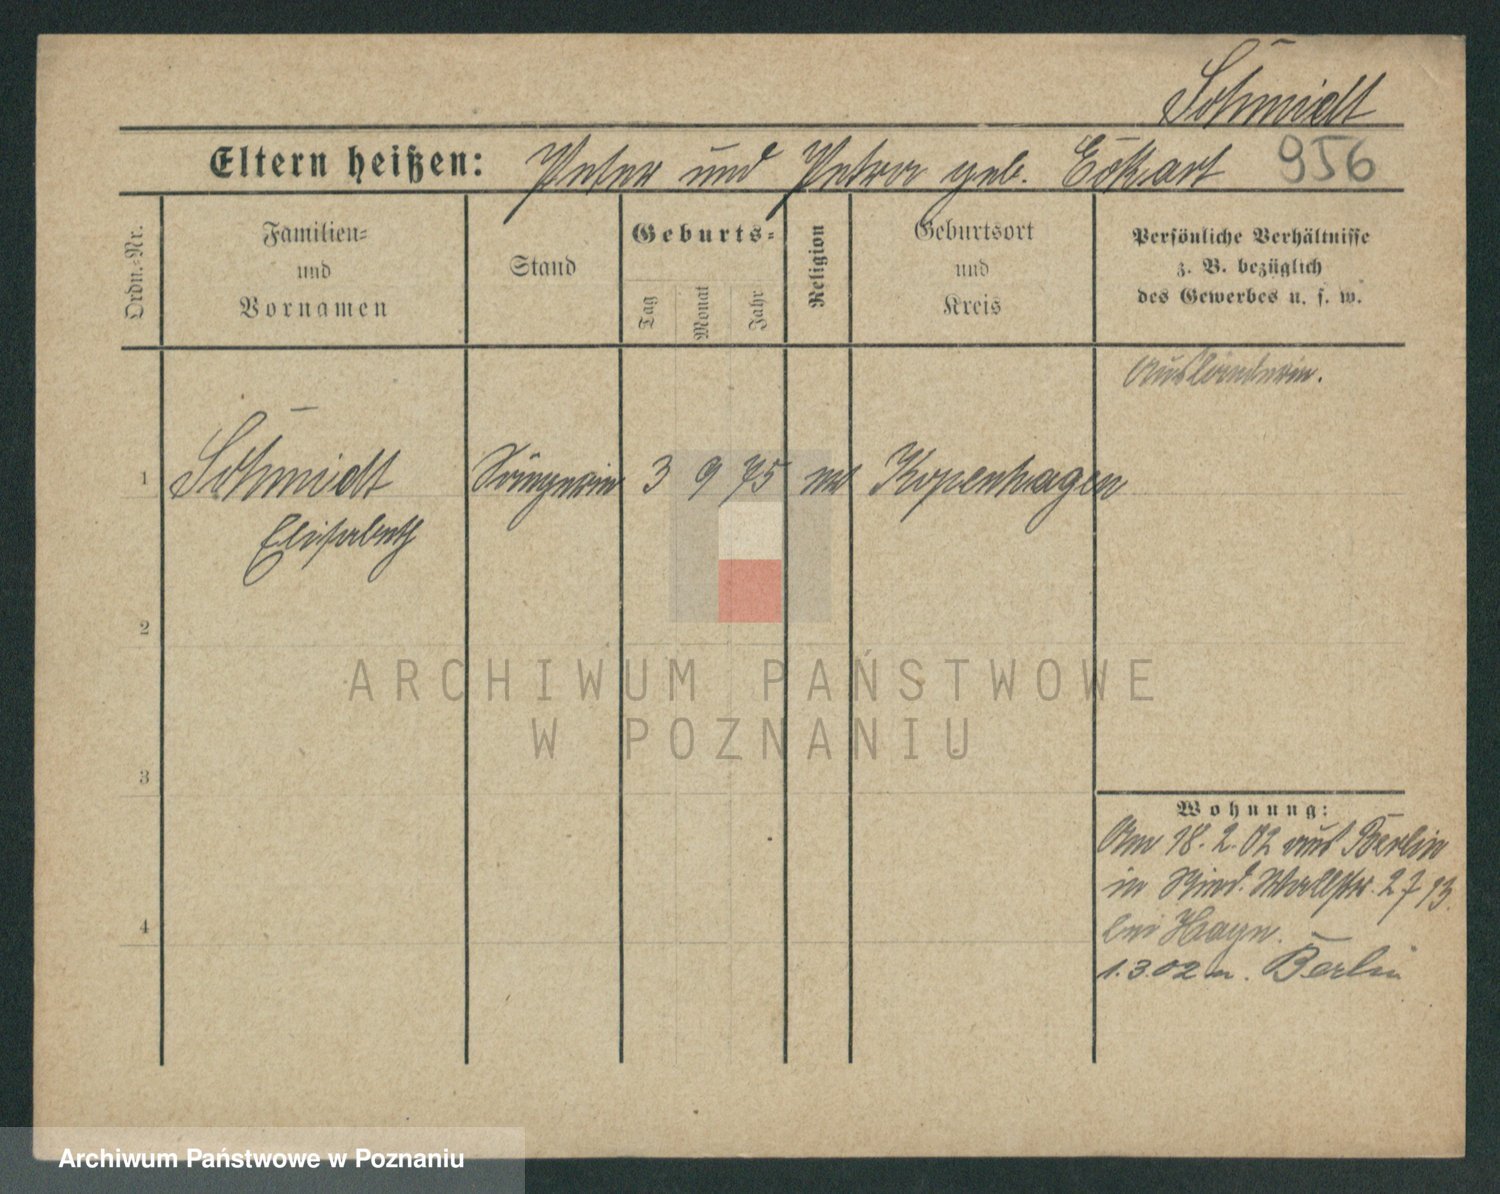 Schmidt
Eltern heißen: Peter und Petra geb. Eckart 956
Ordn.-Nr.
Familien-
und
Vornamen
Stand
Geburts-
Tag
Monat
Jahr
Religion
Geburtsort
und
Kreis
Persönliche Verhältnisse
z. B. bezüglich
des Gewerbes u. s. w.
Ausländerin.
1 Schmidt Sängerin 3 9 75 Kopenhagen
Elisabeth
2
ARCHIWUM PAŃSTWOWE
W POZNANIU
3
Wohnung:
Am 18.2.02 aus Berlin
in Wallstr. 27 13.
4
bei Hayn.
1.3.02 n. Berlin
Archiwum Państwowe w Poznaniu